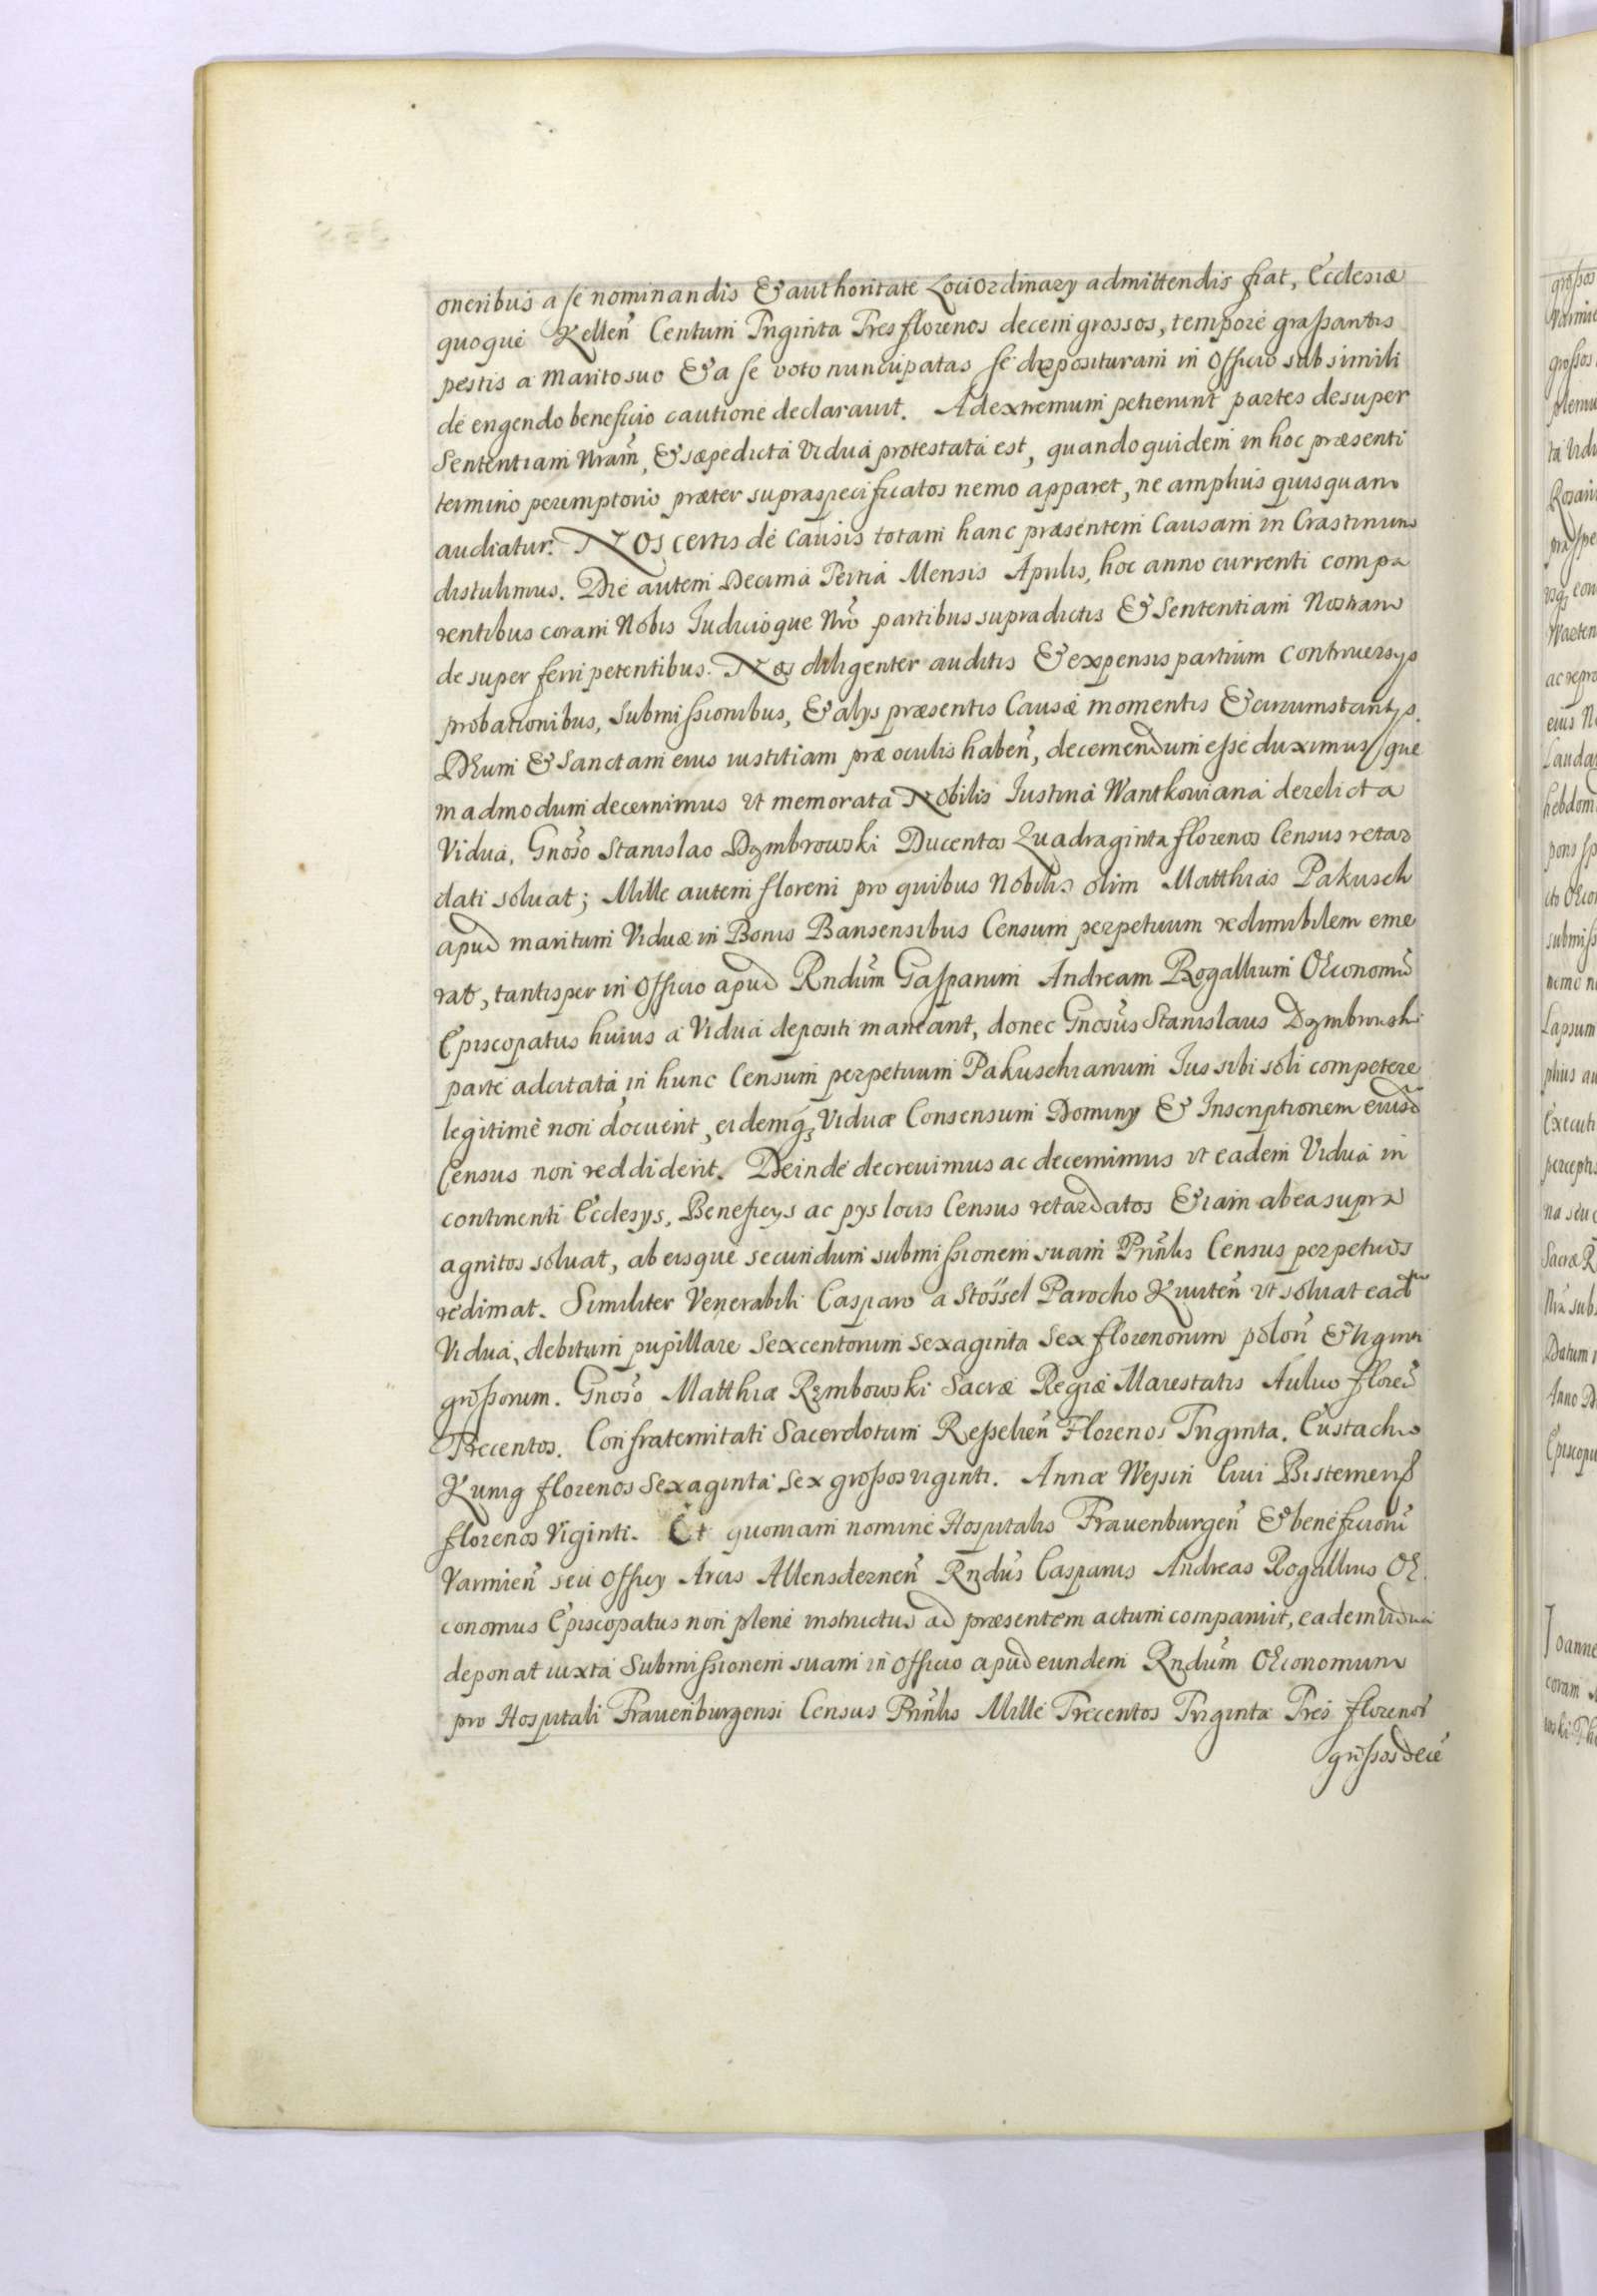 oneribus a se nominandis & authoritate Loci Ordinarÿ admittendis fiat, Ecclesiæ
quoque Kelleñ Centum Triginta Tres florenos decem grossos, tempore graßantis
pestis a Marito suo & a se voto nuncupatas se deposituram in Officio sub simili
de erigendo beneficio cautione declarauit. Ad extremum petierunt partes desuper
Sententiam Nram̃, & sæpedicta Vidua protestata est, quandoquidem in hoc præsenti
termino peremptorio præter supraspecificatos nemo apparet, ne amplius quisquam
audiatur. NOs certis de Causis totam hanc præsentem Causam in Crastinum
distulimus. Die autem Decima Tertia Mensis Aprilis, hoc anno currenti compa
rentibus coram Nobis Iudicioque Nrõ partibus supradictis & Sententiam Nostram
desuper ferri petentibus. Nos diligenter auditis & expensis partium Controuersÿs
probationibus, Submißionibus, & alÿs præsentis Causæ momentis & circumstantÿs.
DEum & Sanctam eius iustitiam præ oculis habeñ, decernendum eße duximus, que
madmodum decernimus vt memorata Nobilis Iustina Wantkowiana derelicta
Vidua, Gnoso Stanislao Dombrowski Ducentos Quadraginta florenos Census retar
dati soluat; Mille autem floreni pro quibus Nobilis olim Matthias Pakusch
apud maritum Viduæ in Bonis Bansensibus Censum perpetuum redimibilem eme
rat, tantisper in Officio apud Rndũm Gasparum Andream Rogallium OEconomũ
Episcopatus huius a Vidua depositi maneant, donec Gnosũs Stanislaus Dombrowski
parte adcitata, in hunc Censum perpetuum Pakuschianum Ius sibi soli competere
legitimè non docuerit, eidemq₃ Viduæ Consensum Dominÿ & Inscriptionem eiusd̃
Census non reddiderit. Deinde decreuimus ac decernimus vt eadem Vidua in
continenti Ecclesÿs, Beneficÿs ac pÿs locis Census retardatos & iam ab ea supra
agnitos soluat, ab eisque secundum submißionem suam Priñlis Census perpetuos
redimat. Similiter Venerabili Casparo a Stössel Parocho Kiwiteñ vt soluat ead
Vidua, debitum pupillare Sexcentorum Sexaginta Sex florenorum poloñ & viginti
großorum. Gnoso Matthiæ Rembowski Sacræ Regiæ Maiestatis Aulico floreñ
Trecentos. Confraternitati Sacerdotum Reßelieñ Florenos Triginta. Eustachio
Kunig florenos Sexaginta Sex großos viginti. Annæ Ciui
florenos Viginti. Et quoniam nomine Hospitalis Frauenburgeñ & beneficiorũ
Varmieñ seu Officÿ Arcis Allensdterneñ Rndũs Casparus Andreas Rogallius OE
conomus Episcopatus non plenè instructus ad præsentem actum comparuit, eadem vidua
deponat iuxta Submißionem suam in Officio apud eundem Rndũm OEconomum
pro Hospitali Frauenburgensi Census Prinlis Mille Trecentos Triginta Tres florenos
großos decẽ